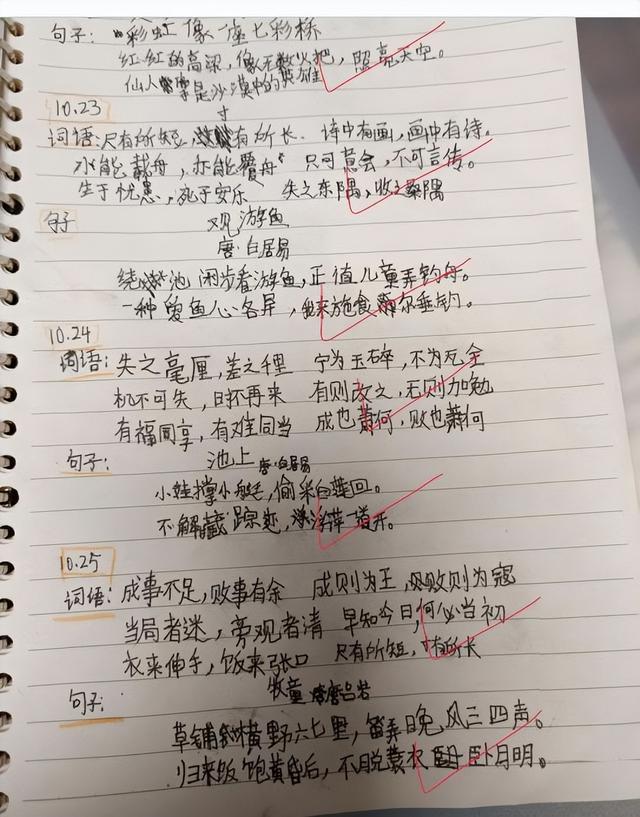 句子："彩虹像一座七彩桥
红红的高粱，像无数火把，照亮天空。
仙人掌是沙漠中的英雄
10.23
寸
词语：尺有所短，有所长．诗中有画，画中有诗。
水能载舟，亦能覆舟 只可意会，不可言传。
生于忧患，死于安乐 失之东隅，收之桑隅
句子 观游鱼
唐·白居易
绕池闲步看游鱼，正值儿童弄钓舟。
一种爱鱼心各异，我来施食尔垂钓。
10.24
词语：失之毫厘，差之千里 宁为玉碎，不为瓦全
机不可失，时不再来 有则改之，无则加勉
有福同享，有难同当 成也萧何，败也萧何
句子： 池上 唐·白居易
小娃撑小艇，偷采白莲回。
不解藏踪迹，浮萍一道开。
10.25
词语：成事不足，败事有余 成则为王，败则为寇
当局者迷，旁观者清 早知今日，何必当初
衣来伸手，饭来张口 尺有所短，寸有所长
句子： 牧童 唐吕岩
草铺横野六七里，笛弄晚风三四声。
归来饭饱黄昏后，不脱蓑衣卧月明。